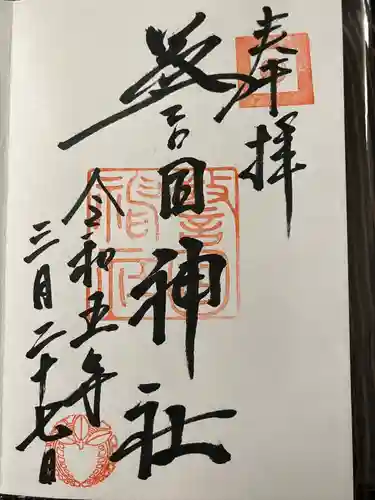 奉拝
警固神社
令和五年
三月二十七日